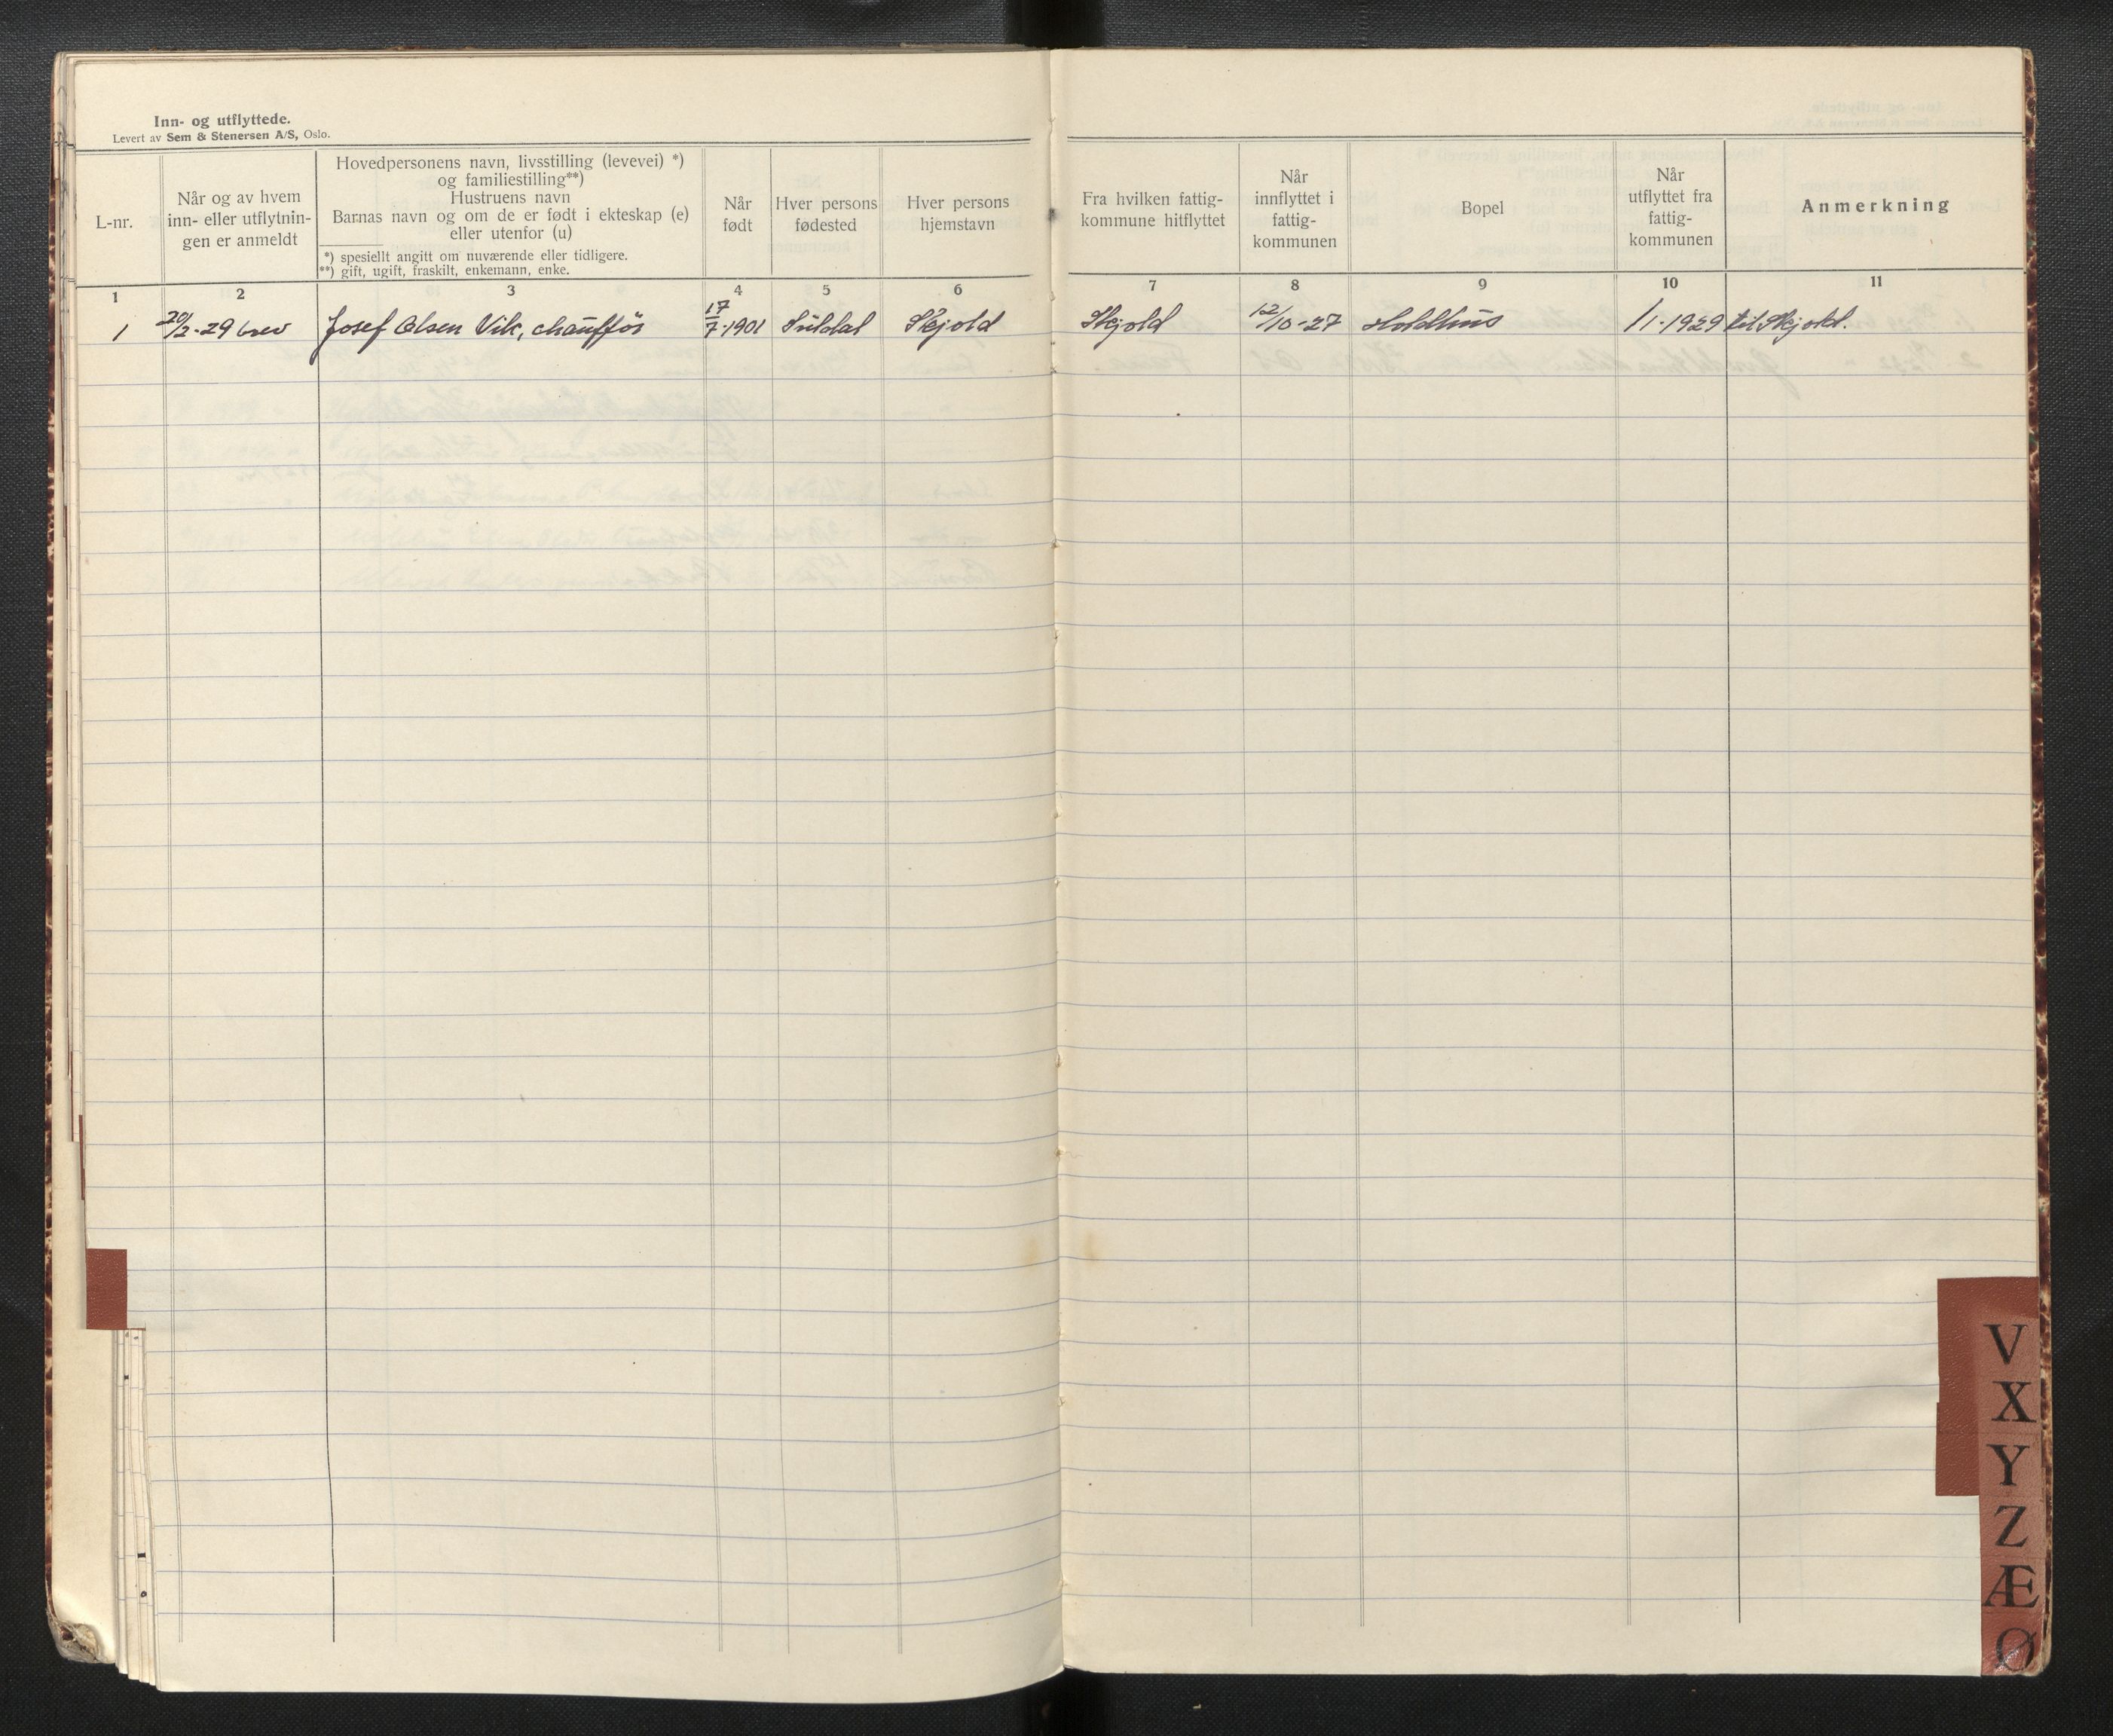 Inn- og utflyttede.
Levert av Sem & Stenersen A/S, Oslo.
L-nr.
Når og av hvem
inn- eller utflytnin-
gen er anmeldt
Hovedpersonens navn, livsstilling (levevei) *)
og familiestilling**)
Hustruens navn
Barnas navn og om de er født i ekteskap (e)
eller utenfor (u)
*) spesiellt angitt om nuværende eller tidligere.
**) gift, ugift, fraskilt, enkemann, enke.
Når
født
Hver persons
fødested
Hver persons
hjemstavn
Fra hvilken fattig-
kommune hitflyttet
Når
innflyttet i
fattig-
kommunen
Bopel
Når
utflyttet fra
fattig-
kommunen
Anmerkning
1 2 3 4 5 6 7 8 9 10 11
1 20/2-29 brev Josef Olsen Vik, chauffør 17/7-1901 Suldal Skjold Skjold 12/10-27 Holdhus 1/1-1929 til Skjold.
V
X
Y
Z
Æ
Ø